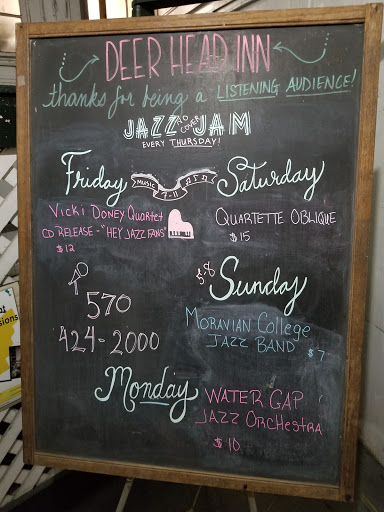 DEER HEAD INN
thanks for being a LISTENING AUDIENCE!
JAZZ NO COVER JAM
EVERY THURSDAY!
Friday
MUSIC 7-11
Saturday
VICKI DONEY QUARTET
CD RELEASE - "HEY JAZZ FANS"
$12
QUARTETTE OBLIQUE
$15
5-8 Sunday
MORAVIAN COLLEGE
JAZZ BAND $7
570
424-2000
Monday
WATER GAP
JAZZ ORCHESTRA
$10